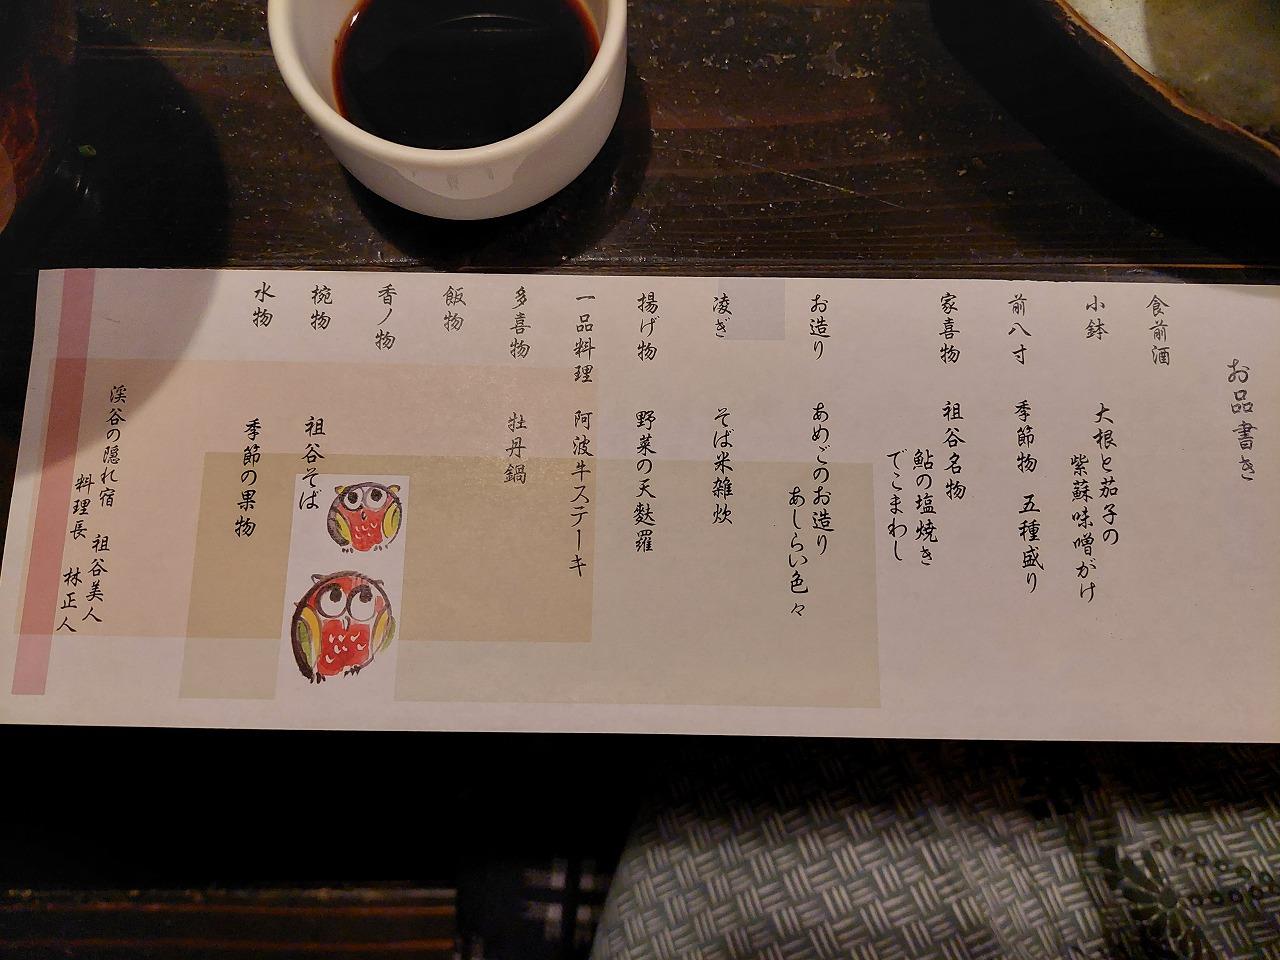 お品書き
食前酒
小鉢　大根と茄子の
紫蘇味噌がけ
前八寸　季節物　五種盛り
家喜物　祖谷名物
鮎の塩焼き
でこまわし
お造り　あめごのお造り
あしらい色々
凌ぎ　そば米雑炊
揚げ物　野菜の天麩羅
一品料理　阿波牛ステーキ
多喜物　牡丹鍋
飯物
香ノ物
椀物　祖谷そば
水物　季節の果物
渓谷の隠れ宿　祖谷美人
料理長　林正人